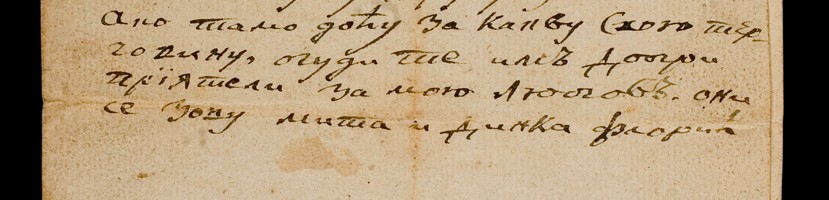 Ако тамо доћу за какву свою тер-
говину, буди те имъ добри
пріятели за мою любовъ. они
се зову мита и Динка